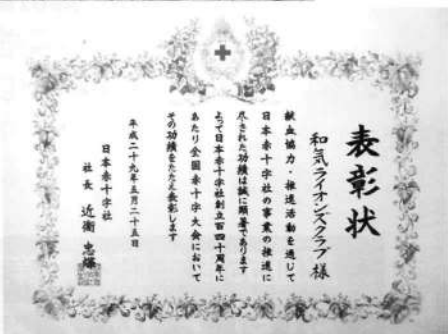 表彰状
和気ライオンズクラブ 様
献血協力・推進活動を通じて
日本赤十字社の事業の推進に
尽された功績は誠に顕著であります
よって日本赤十字社創立百四十周年に
あたり全国赤十字大会において
その功績をたたえ表彰します
平成二十九年五月二十五日
日本赤十字社
社長 近衞 忠煇